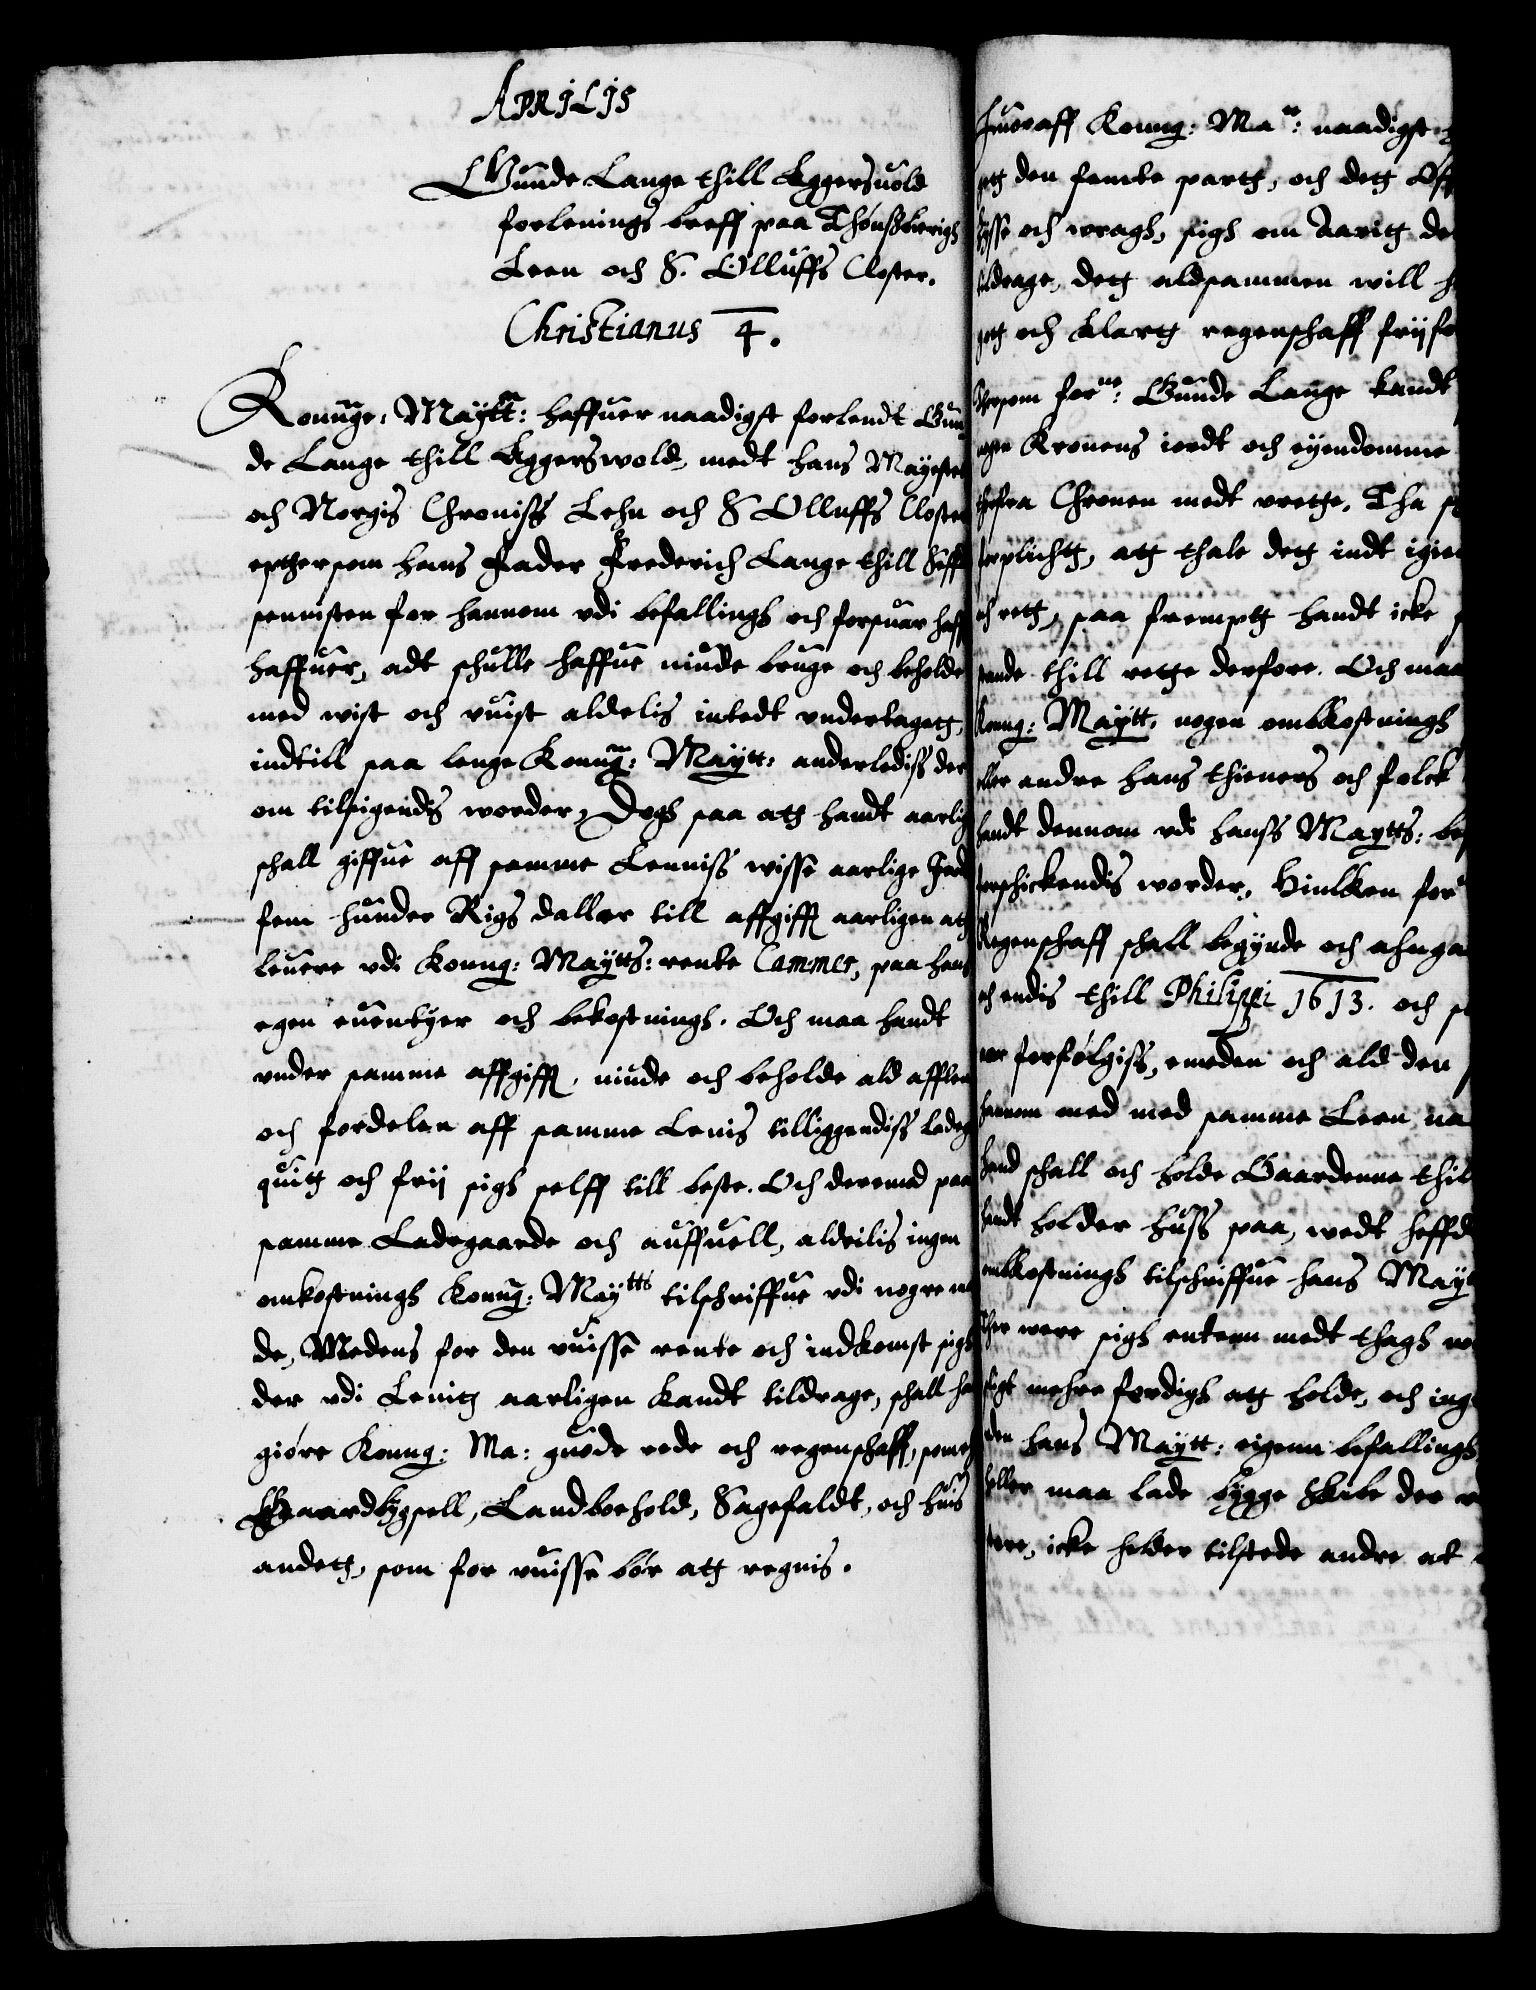 Aprilis
Gunde Lange thill Eggersuold
forlenings breff paa Thønßberigs
Leen och S. Olluffs Closter.
Christianus 4.
Konnge: Maytt: haffuer naadigst forlendt Gun
de Lange thill Eggerswold, medt hans Mayestet
och Norgis Croniss Lehn och S Olluffs Closter
epthersom hans Fader Frederich Lange thill
sennisten for hannom vdi befallings och forsuar haff
haffuer, adt schulle haffue niude bruge och beholde
med wist och vuist aldelis intedt vndertagett,
indtill saa lenge Konng: Maytt: anderlediss der
om tilsigendis worder, Dogh saa att handt aarlig
schall giffue aff samme Lenniss wisse aarlige
fem hunder Rigs daller till affgifft aarligen att
leuere vdi Konng: Maytts: rente Cammer, paa hans
egen euentyer och bekostnings. Och maa handt
vnder samme affgifft, niude och beholde ald
och fordelen aff samme Lenis tilliggendiss
quitt och frij sigh selff till beste. Och deremod paa
samme Ladegaarde och auffuell, aldeilis ingen
omkostnings Konng: Maytts tilschriffue vdi nogre
de, Medens for den vuisse rente och indkomst sigh
der vdi Lenitt aarligen kandt tildrage, schall
giøre Konng: Ma: guode rede och regenschaff, som
Gaardbygsell, Landboehold, Sagefaldt, och huis
andett, som for vuisse bør att regnis.
huoraff Konng: Matt: naadigst
den femte partt, och dett
och wragh, sigh om Aaritt
tildrage, dett aldsammen will
och klartt regenschaff
forne: Gunde Lange kandt
Kronens iordt och eyendomme
Chronen medt rette, Tha
forplichtt, att thale dett indt igien
och rett, saa frempt handt icke
stande thill rette derfore. Och maa
Konng: Maytt, nogen ombkostnings
eller andre hans thieners och folck
handt dennom vdi hanss Maytts:
forschickendis worder, Huilken
Regenschaff schall begynde och
och endis thill Philippi 1613. och
forfølgiss, emeden och ald den
hannom med med samme Leen
Hand schall och holde Gaardenne
handt holder huss paa, wedt
ombkostnings tilschriffue hans
were sigh entenn medt thagh
mehre ferdigh att holde, och
den hans Maytt: eigenn befallings
heller maa lade bygge Skibe der
icke heller tilstede andre at